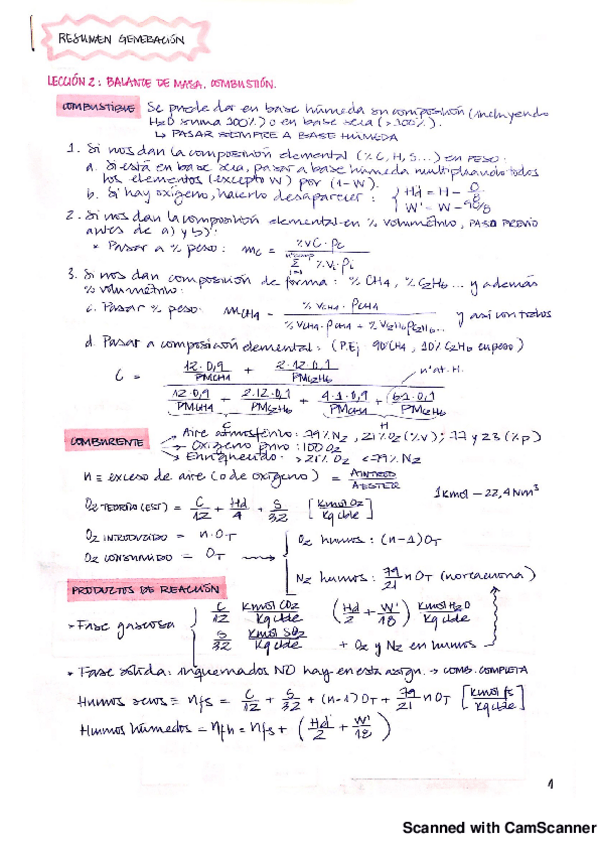 RESUMEN GENERACIÓN
LECCIÓN 2: BALANCE DE MASA. COMBUSTIÓN.
COMBUSTIBLE Se puede dar en base húmeda su composición (incluyendo
H2O suma 100%) o en base seca (>100%).
↳ PASAR SIEMPRE A BASE HÚMEDA
1. Si nos dan la composición elemental (% C, H, S...) en PESO:
a. Si está en base seca, pasar a base húmeda multiplicando todos
los elementos (excepto W) por (1-W).
b. Si hay oxígeno, hacerlo desaparecer: { Hd = H - O/8
W' = W - 9O/8
2. Si nos dan la composición elemental en % volumétrico, PASO PREVIO
antes de a) y b):
* Pasar a % peso: mc = %vC · ρc / Σ %vi · ρi
3. Si nos dan composición de forma: % CH4, % C2H6 ... y además
% volumétrico:
c. Pasar % peso: mCH4 = %vCH4 · ρCH4 / %vCH4 · ρCH4 + %vC2H6 ρC2H6... y así con todos
d. Pasar a composición elemental: (P.Ej 90% CH4, 10% C2H6 en peso)
C = 12·0,9/PMCH4 + 2·12·0,1/PMC2H6 / 12·0,9/PMCH4 + 2·12·0,1/PMC2H6 + 4·1·0,9/PMCH4 + 6·1·0,1/PMC2H6
nº at. H.
C H
COMBURENTE → Aire atmosférico: 79% N2, 21% O2 (%v); 77 y 23 (%p)
→ Oxígeno puro: 100 O2
→ Enriquecido: >21% O2 <79% N2
n ≡ exceso de aire (o de oxígeno) =
1 Kmol - 22,4 Nm³
O2 TEÓRICO (EST) = C/12 + Hd/4 + S/32 [Kmol O2 / Kg cble]
O2 INTRODUCIDO = n·OT
O2 CONSUMIDO = OT → { O2 humos: (n-1)OT
N2 humos: 79/21 n OT (no reacciona)
PRODUCTOS DE REACCIÓN
→ Fase gaseosa { C/12 Kmol CO2/Kg cble (Hd/2 + W'/18) Kmol H2O/Kg cble
S/32 Kmol SO2/Kg cble + O2 y N2 en humos
• Fase sólida: inquemados NO hay en esta asign. → COMB. COMPLETA
Humos secos ≡ nfs = C/12 + S/32 + (n-1)OT + 79/21 n OT [Kmol fs / Kg cble]
Humos húmedos = nfh = nfs + (Hd/2 + W'/18)
1
Scanned with CamScanner